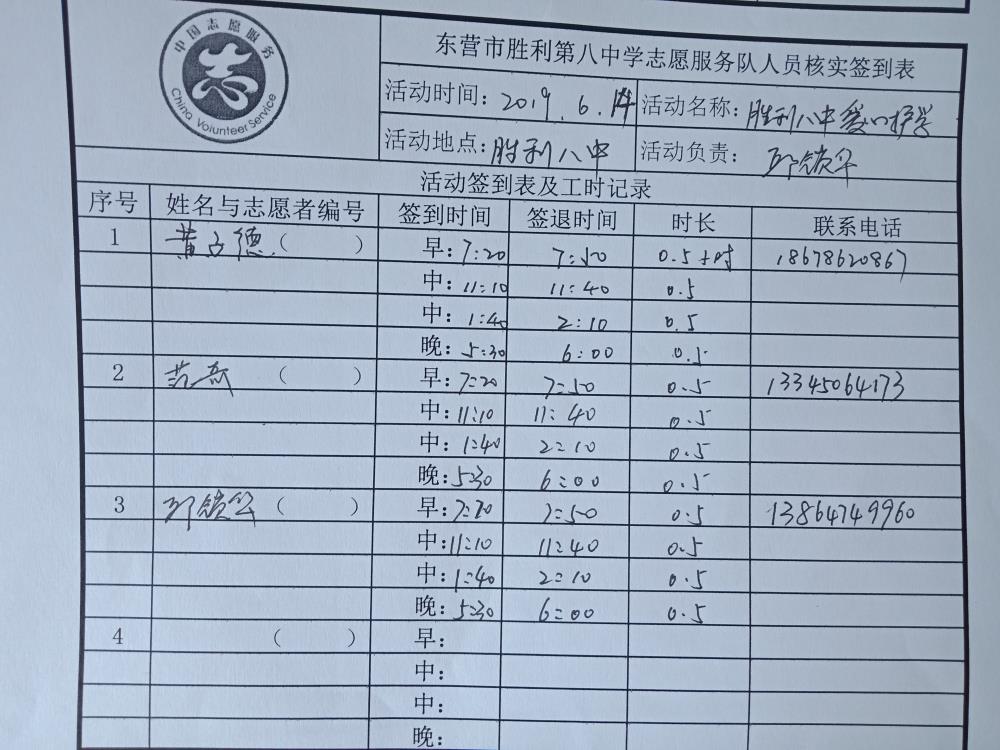 中国志愿服务
志
China Volunteer Service
东营市胜利第八中学志愿服务队人员核实签到表
活动时间：2019.6.14 活动名称：胜利八中爱心护学
活动地点：胜利八中 活动负责：邱锁华
活动签到表及工时记录
序号 姓名与志愿者编号 签到时间 签退时间 时长 联系电话
1 黄占德（ ） 早：7:20 7:50 0.5小时 18678620867
中：11:10 11:40 0.5
中：1:40 2:10 0.5
晚：5:30 6:00 0.5
2 （ ） 早：7:20 7:50 0.5 13345064173
中：11:10 11:40 0.5
中：1:40 2:10 0.5
晚：5:30 6:00 0.5
3 邱锁华（ ） 早：7:20 7:50 0.5 13864749960
中：11:10 11:40 0.5
中：1:40 2:10 0.5
晚：5:30 6:00 0.5
4 （ ） 早：
中：
中：
晚：